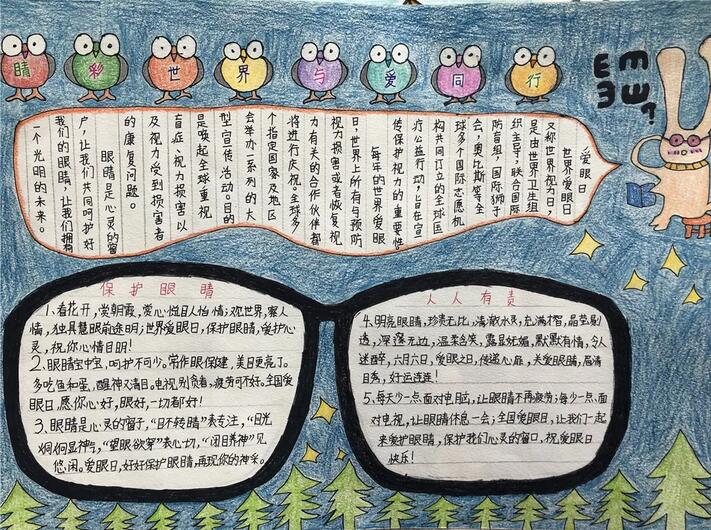 睛彩世界与爱同行
E m
Ǝ W ?
爱眼日
世界爱眼日
又称世界视力日,
是由世界卫生组
织主导,联合国际
防盲组,国际狮子
会,奥比斯等全
球多个国际志愿机
构共同订立的全球医
疗公益行动,旨在宣
传保护视力的重要性
每年的世界爱眼
日,世界上所有与预防
视力损害或者恢复视
力有关的合作伙伴都
将进行庆祝。全球多
个指定国家及地区
会举办一系列的大
型宣传活动。目的
是唤起全球重视
盲症,视力损害以
及视力受到损害者
的康复问题。
眼睛是心灵的窗
户,让我们共同呵护好
我们的眼睛,让我们拥抱
一个光明的未来。
保护眼睛
1、看花开,赏朝霞,赏心悦目人怡情;观世界,察人
情,独具慧眼前途明;世界爱眼日,保护眼睛,爱护心
灵,祝你心情目明!
2、眼睛宝中宝,呵护不可少。常作眼保健,美目更亮了。
多吃鱼和蛋,醒神又清目。电视,别贪看,疲劳可不好。全国爱
眼日,愿你心好,眼好,一切都好!
3、眼睛是心灵的窗子,“目不转睛”表专注,“目光
炯炯显神气,“望眼欲穿”表心切,“闭目养神”见
悠闲。爱眼日,好好保护眼睛,再现你的神采。
人人有责
4、明亮眼睛,珍贵无比,清澈水灵,充满才智,晶莹剔
透,深深无边,温柔含笑,露显妩媚,默默有情,令人
迷醉,六月六日,爱眼之日,传递心底,关爱眼睛,眉清
目秀,好运连连!
5、每天少一点面对电脑,让眼睛不再疲劳;每少一点面
对电视,让眼睛休息一会;全国爱眼日,让我们一起
来爱护眼睛,保护我们心灵的窗口,祝爱眼日
快乐!